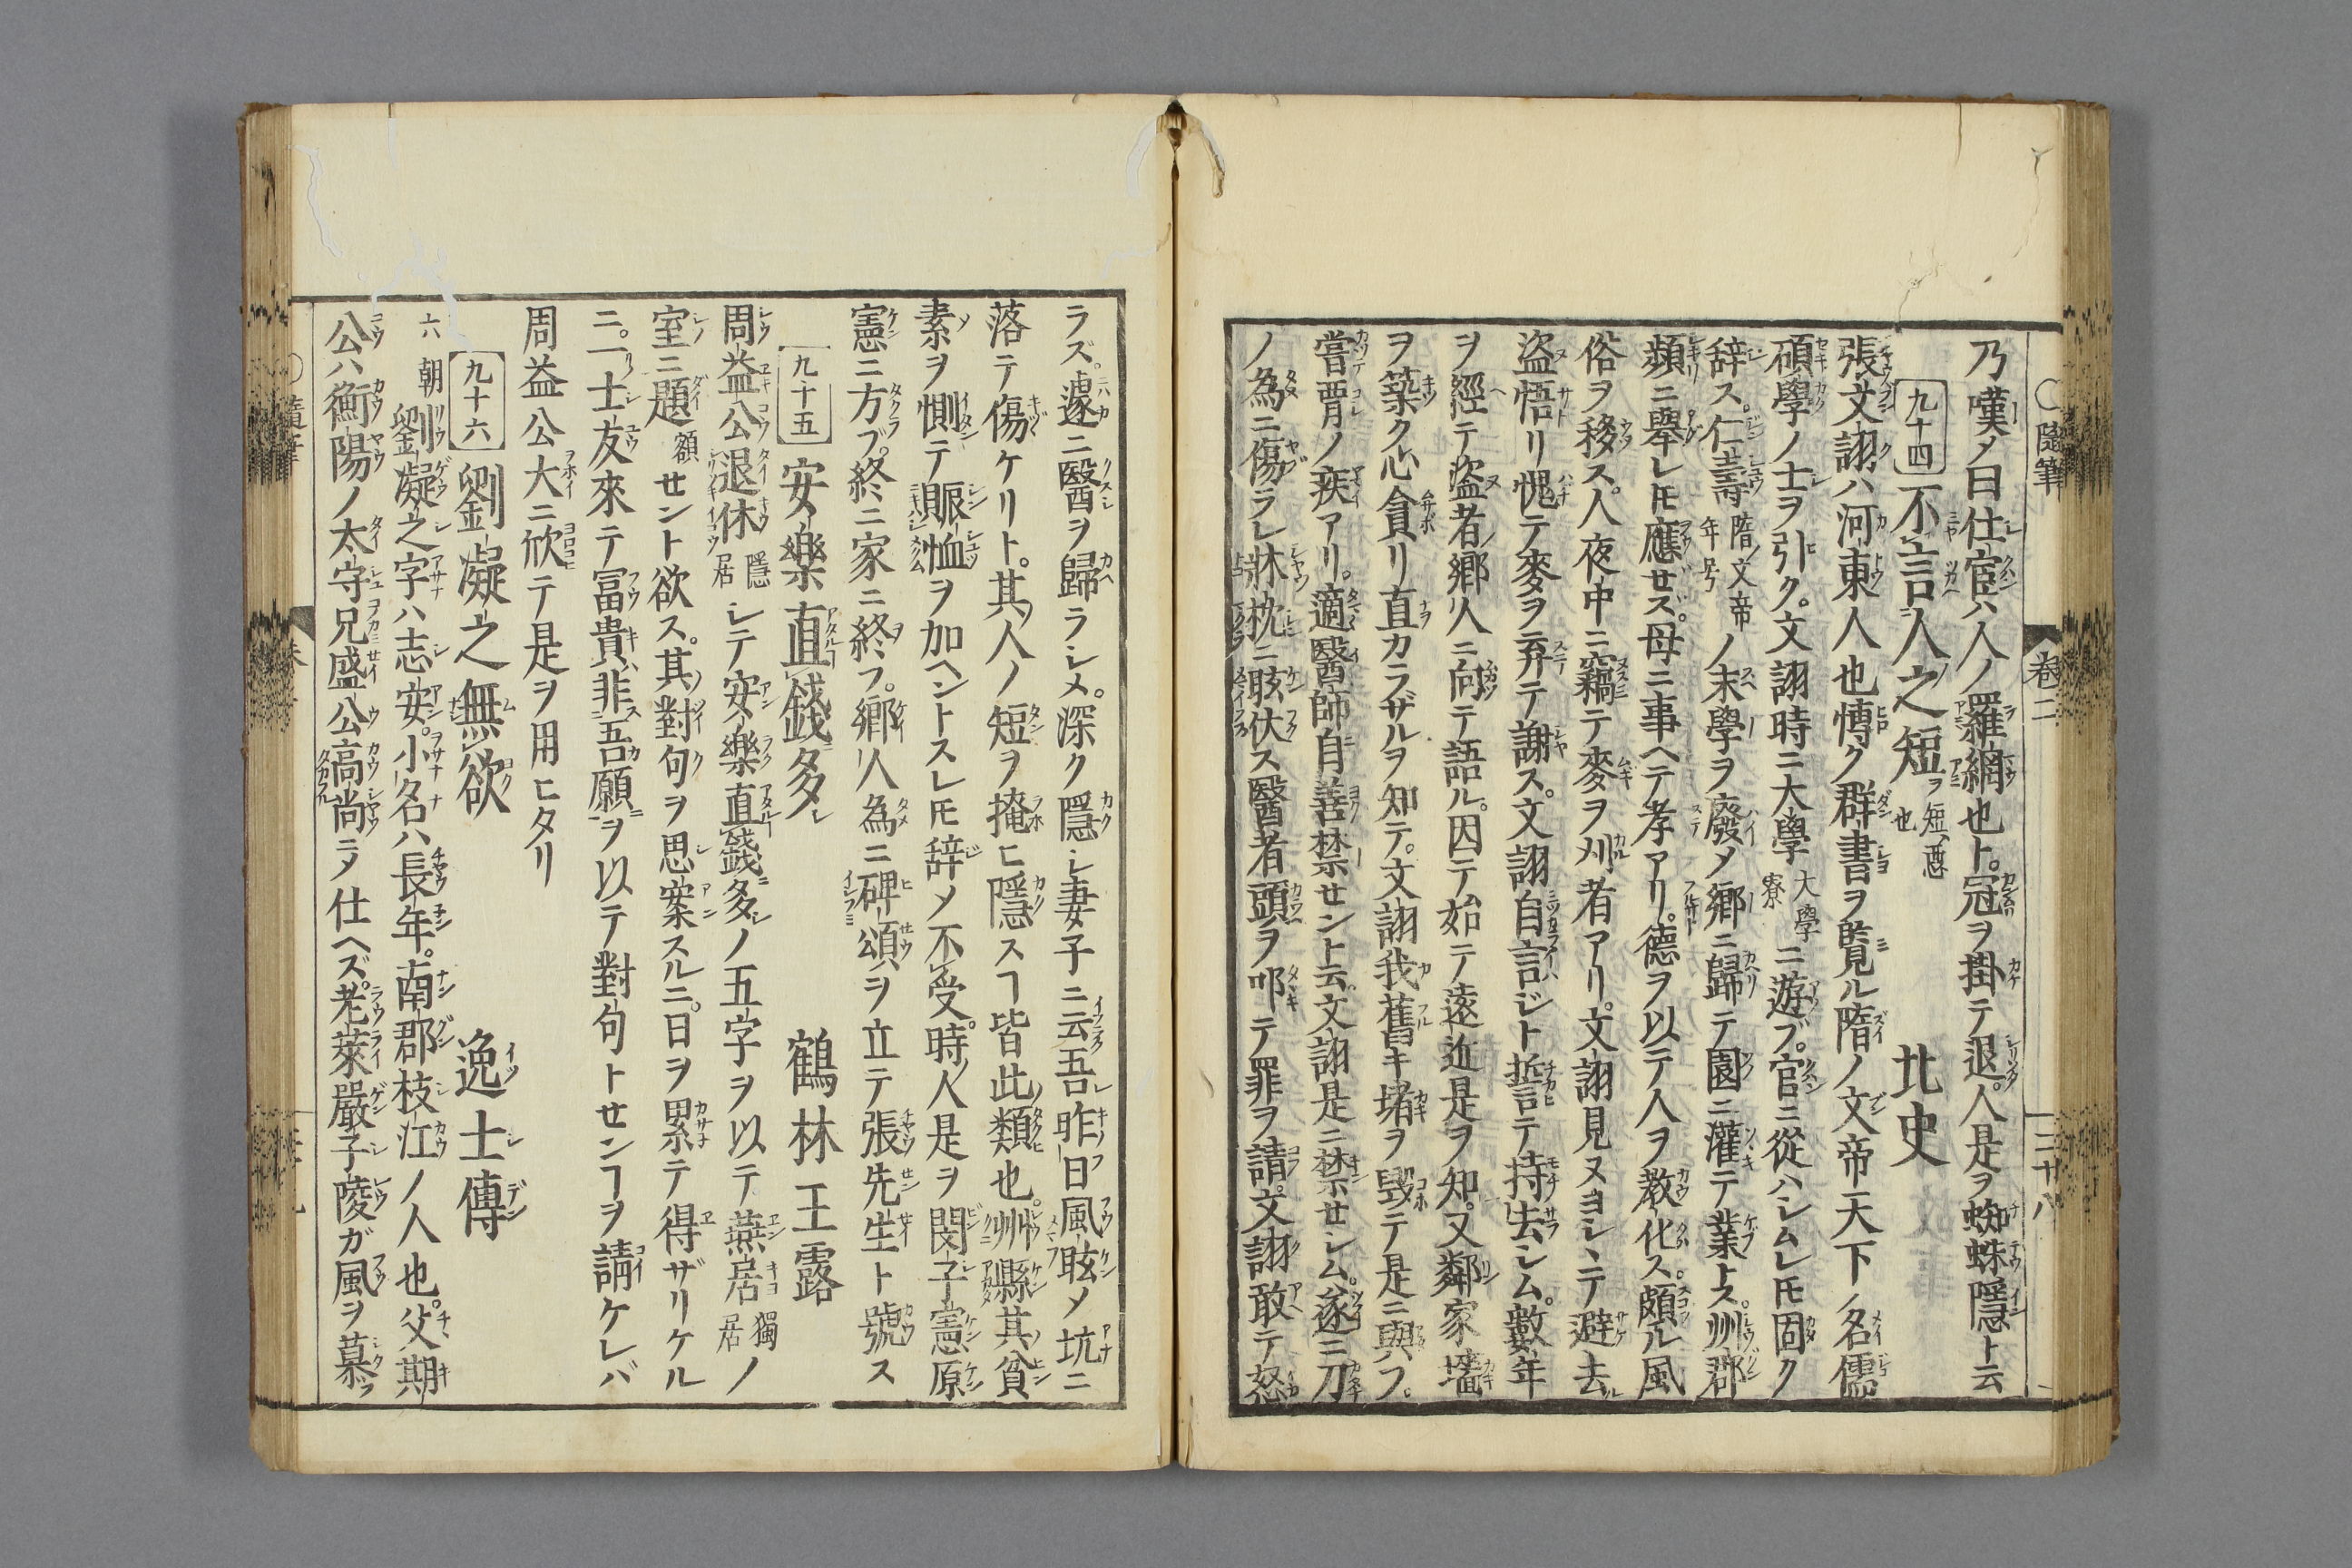 〇隨筆 卷二 二十八
乃嘆ノ曰仕宦ハ人ノ羅網也ト。冠ヲ掛テ退。人是ヲ蜘蛛隱ト云
九十四 不言人之短ヲ 短、惡也 北史
張文詡ハ河東人也博ク群書ヲ覧ル隋ノ文帝天下ノ名儒
碩學ノ士ヲ引ク。文詡時ニ大學 大學寮 ニ遊ブ。官ニ從ハシムレ𪜈固ク
辞ス。仁壽 隋ノ文帝年号 ノ末學ヲ廢メ郷ニ歸テ園ニ灌テ業トス。州郡
頻ニ舉レ𪜈應ゼズ。母ニ事ヘテ孝アリ。德ヲ以テ人ヲ教化ス。頗ル風
俗ヲ移ス。人夜中ニ竊テ麥ヲ刈者アリ。文詡見ヌヨシヽテ避去ル
盗悟リ愧テ麥ヲ弃テ謝ス。文詡自言ジト誓テ持去シム。數年
ヲ經テ盗者郷人ニ向テ語ル。因テ始テ遠近是ヲ知。又鄰家墻
ヲ築ク心貪リ直カラザルヲ知テ。文詡我舊キ堵ヲ毀テ是ニ與フ。
嘗腎ノ疾アリ。適醫師自善禁セント云。文詡是ニ禁セシム。遂ニ刀
ノ為ニ傷ラレ牀枕ニ眩伏ス醫者頭ヲ叩テ罪ヲ請。文詡敢テ怒
ラズ。遽ニ醫ヲ歸ラシメ。深ク隱シ妻子ニ云吾昨日風眩メ坑ニ
落テ傷ケリト。其人ノ短ヲ掩ヒ隱スヿ皆此類也。州縣其貧
素ヲ惻テ賑恤ヲ加ヘントスレ𪜈辞メ不受。時人是ヲ閔子騫原
憲ニ方ブ。終ニ家ニ終フ。郷人為ニ碑頌ヲ立テ張先生ト號ス
九十五 安樂直錢多シ 鶴林玉露
周益公退休 隱居 シテ安樂直錢多シノ五字ヲ以テ燕居 獨居 ノ
室ニ題 額 セント欲ス。其對句ヲ思案スルニ。日ヲ累テ得ザリケル
ニ。一士友來テ冨貴ハ非吾願ヲ以テ對句トセンヿヲ請ケレバ
周益公大ニ欣テ是ヲ用ヒタリ
九十六 劉凝之無欲 逸士傳
六朝 劉凝之字ハ志安。小名ハ長年。南郡枝江ノ人也。父期
公ハ衡陽ノ太守兄盛公高尚ニ〆仕ヘズ。老萊嚴子陵ガ風ヲ慕フ